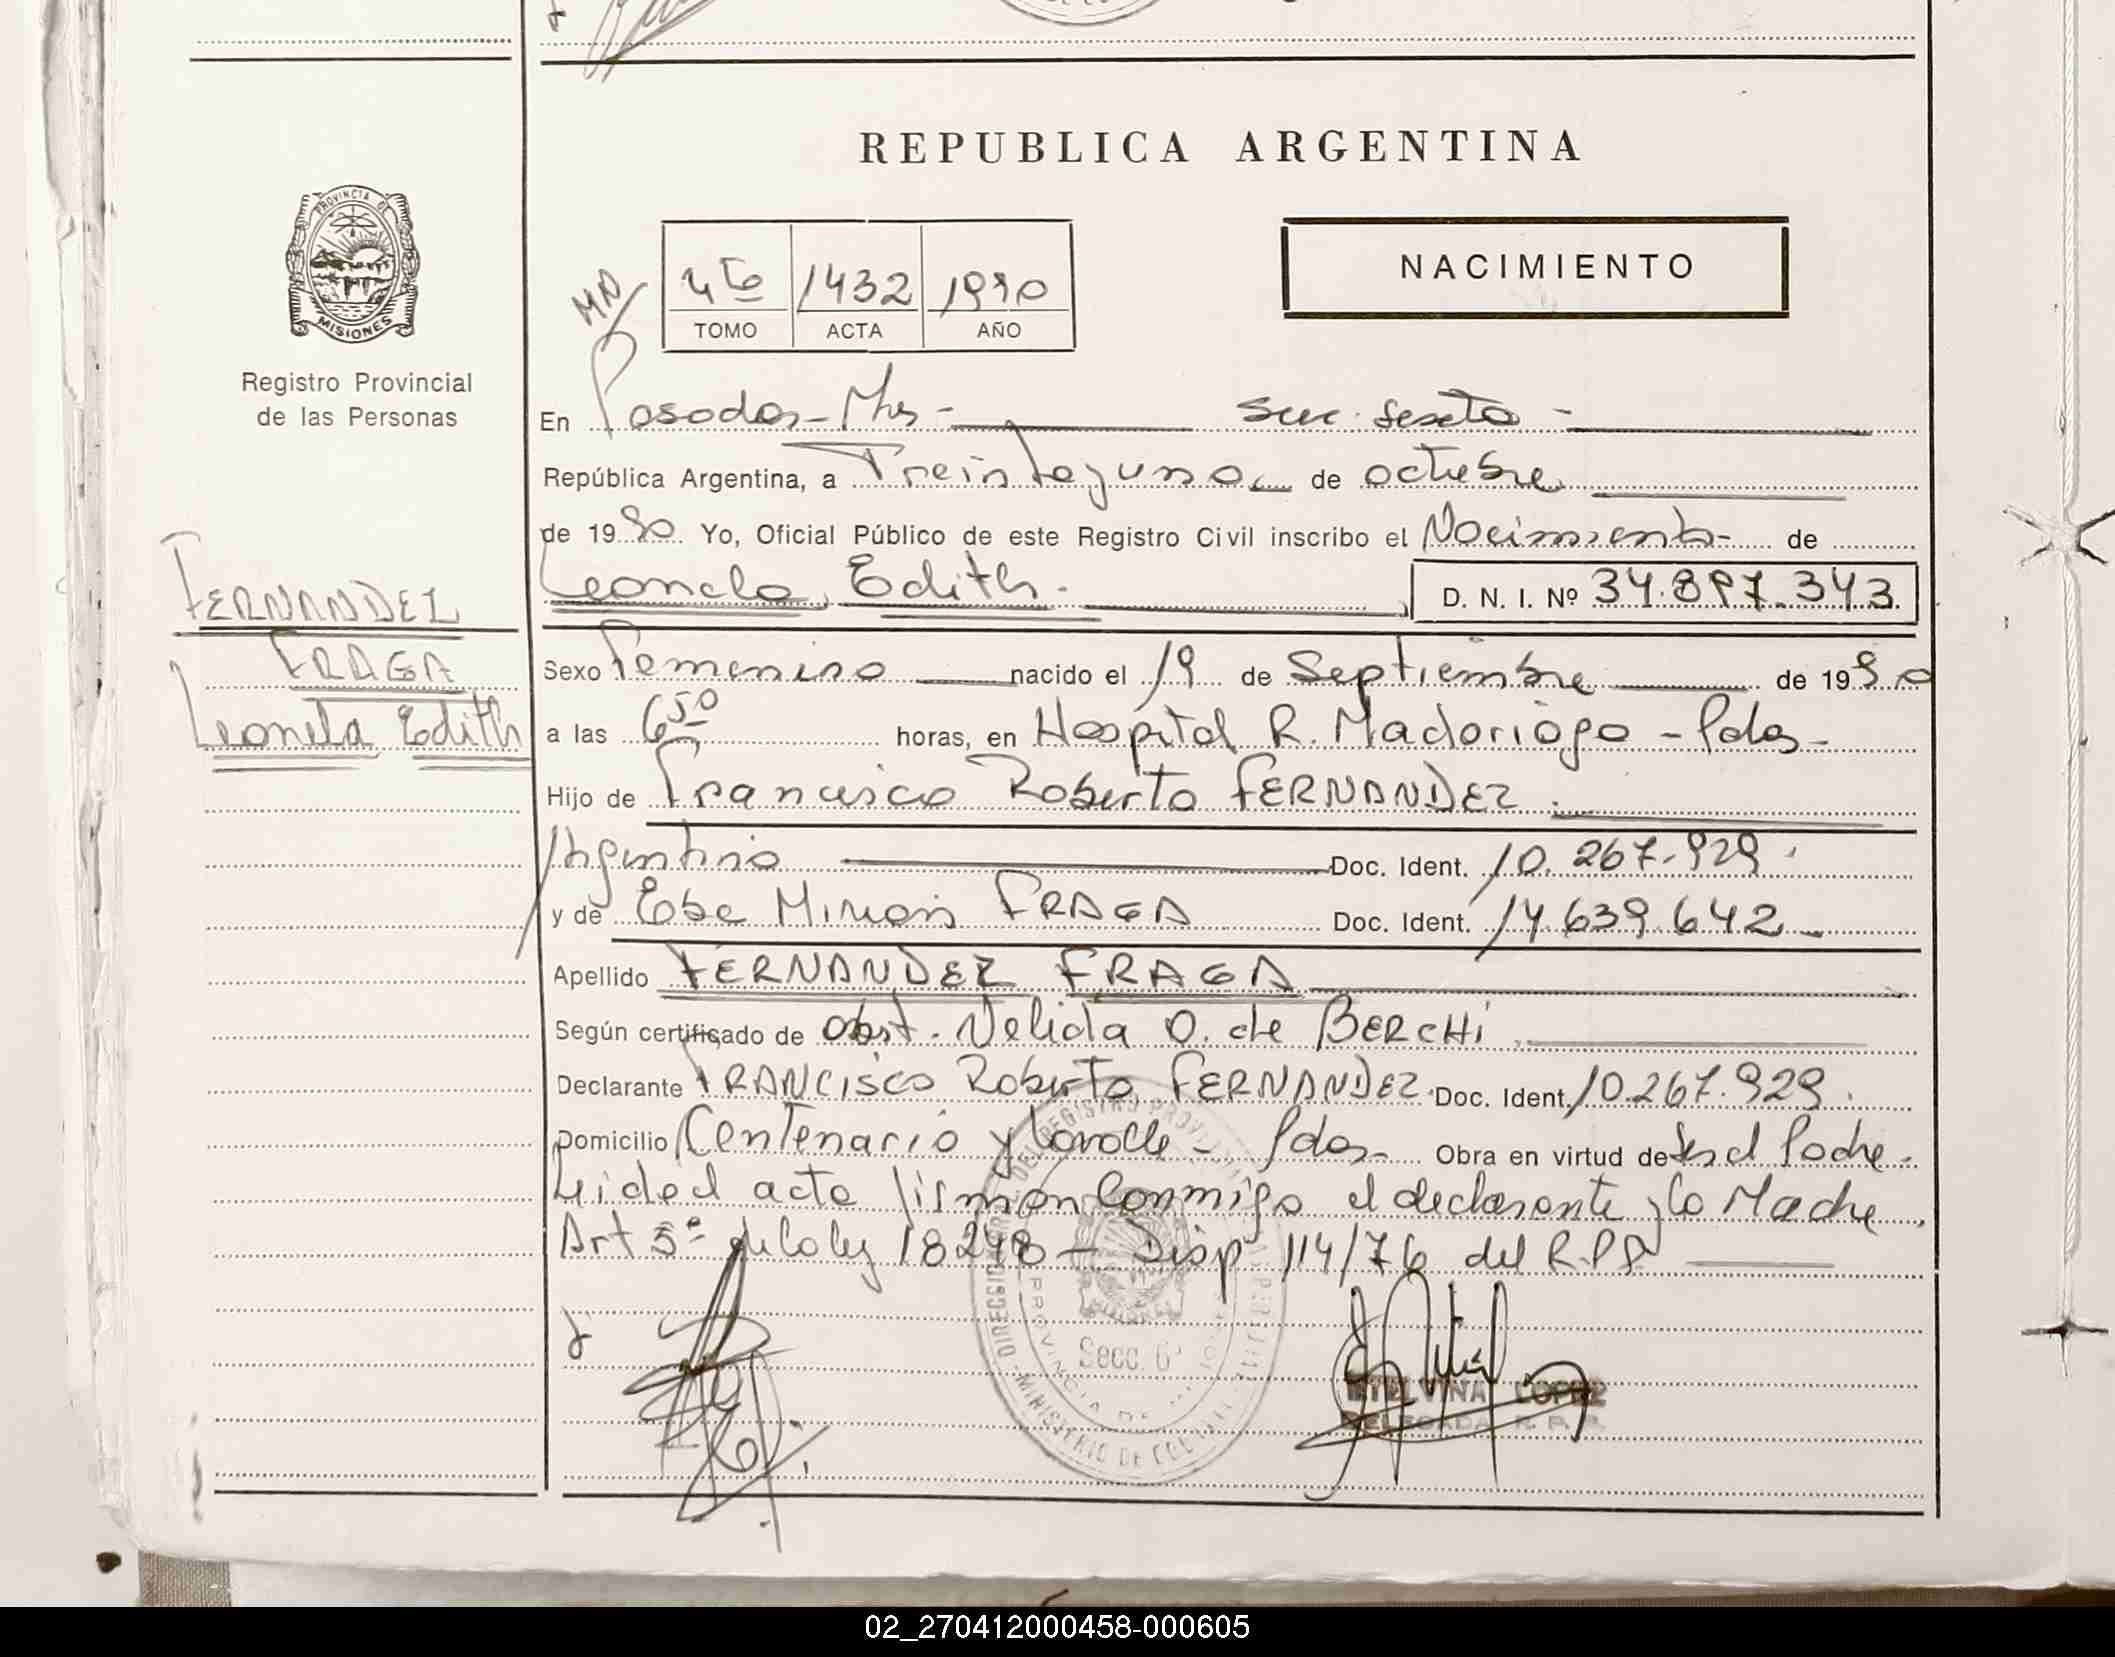 REPUBLICA ARGENTINA
PROVINCIA DE
MISIONES
Registro Provincial
de las Personas
4to 1432 1990
TOMO ACTA AÑO
NACIMIENTO
En Posadas - Mnes - Secc. Sexta -
República Argentina, a Treinta y uno de octubre
de 1990 Yo, Oficial Público de este Registro Civil inscribo el Nacimiento - de
Leonela Edith. D. N. I. Nº 34.897.343
FERNANDEZ
FRAGA
Leonela Edith
Sexo Femenino nacido el 19 de Septiembre de 1990
a las 6 50 horas, en Hospital R. Madariaga - Pdas -
Hijo de Francisco Roberto FERNANDEZ
Argentino Doc. Ident. 10.267.929.
y de Ebe Miriam FRAGA Doc. Ident. 14.639.642 -
Apellido FERNANDEZ FRAGA
Según certificado de Obst. Nelida O. de BERCHI
Declarante FRANCISCO Roberto FERNANDEZ Doc. Ident. 10.267.929.
Domicilio Centenario y Lavalle - Pdas - Obra en virtud de Ser el Padre.
Leida el acta firman conmigo el declarante y la Madre.
Art 5º de la ley 18248 - Disp 114/76 del R.P.P.
Secc. 6ª
ETELVINA LOPEZ
DELEGADA R. P. P.
02_270412000458-000605